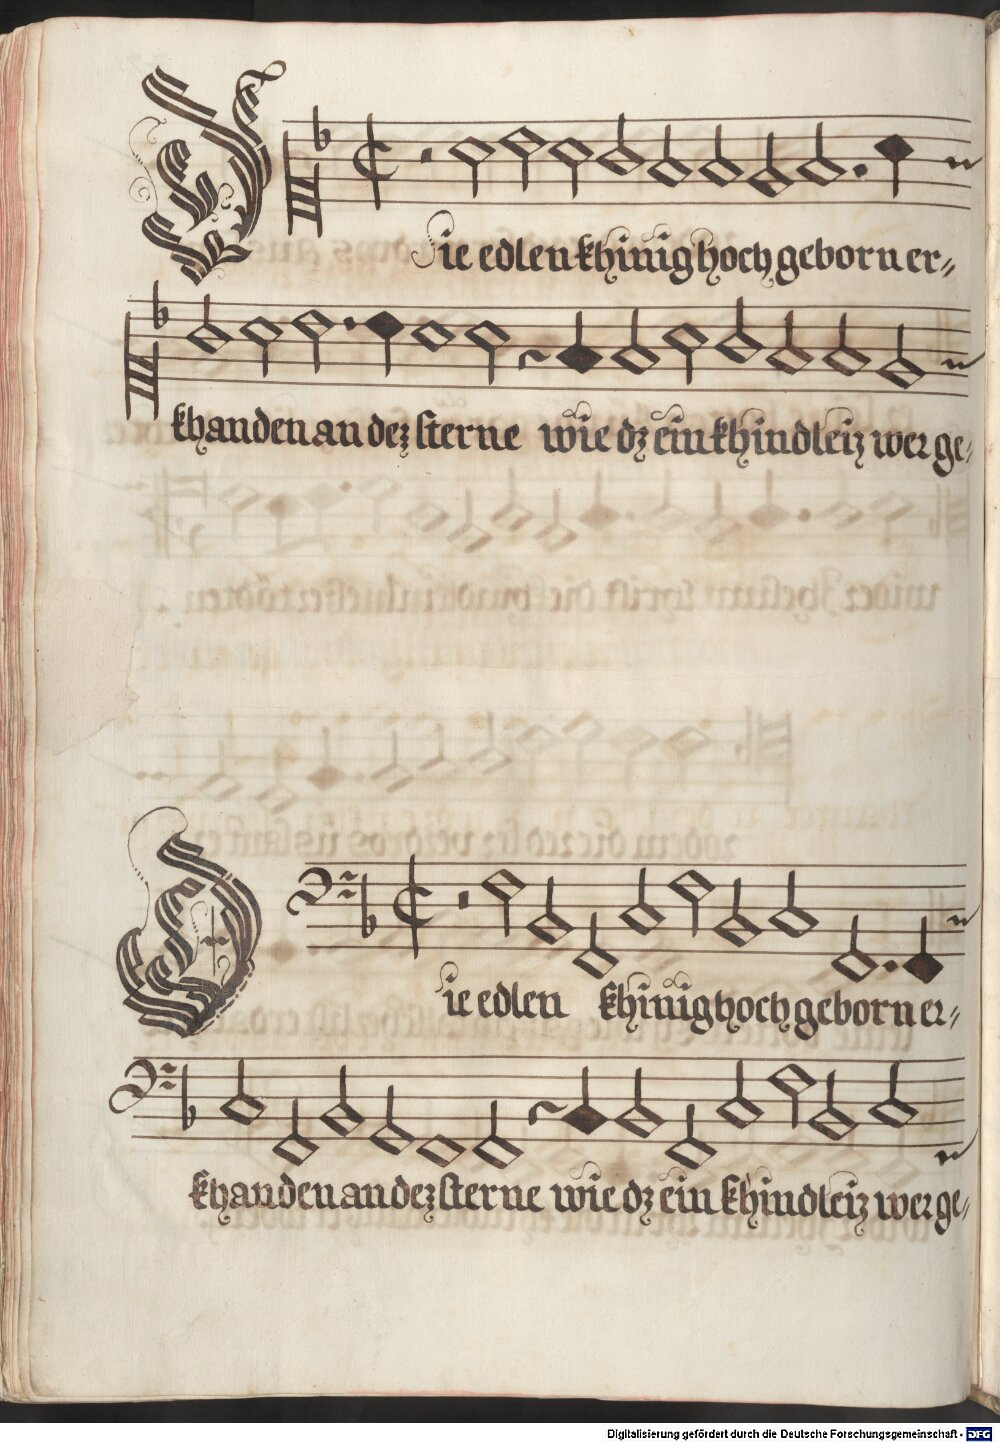 Die edlen khinig hoch geborn er=
khanden an dez sterne wie dz ein khindleiz wer ge=
Die edlen khinig hoch geborn er=
khanden an dez sterne wie dz ein khindleiz wer ge=
Digitalisierung gefördert durch die Deutsche Forschungsgemeinschaft - DFG